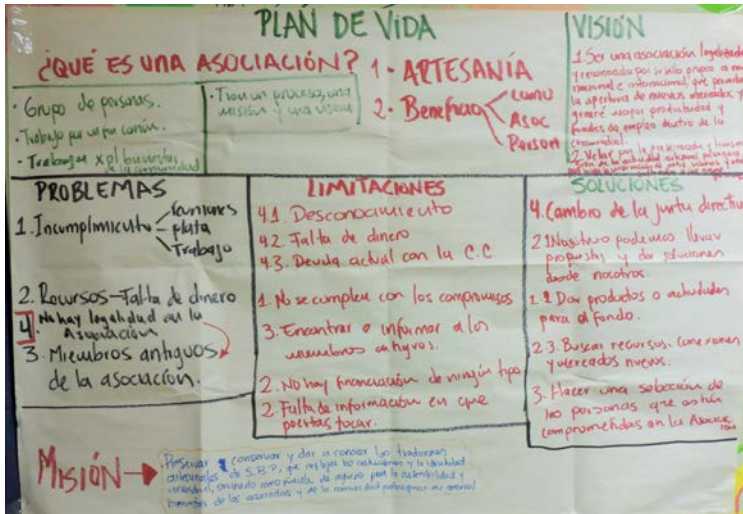 PLAN DE VIDA
¿QUÉ ES UNA ASOCIACIÓN?
· Grupo de personas.
· Trabajo por un fin común.
· Trabajan x el bienestar
de la comunidad
· Tiene un proceso, una
misión y una visión
1 - ARTESANÍA
2 - Beneficio
Comu
Asoc
Person
VISIÓN
1. Ser una asociación legalizada
y reconocida por su sello propio a
nacional e internacional, que permita
la apertura de nuevos mercados y
genere mayor productividad y
fuentes de empleo dentro de la
comunidad.
2. Velar por la
PROBLEMAS
1. Incumplimiento
reuniones
plata
Trabajo
2. Recursos - Falta de dinero
4 No hay legalidad en la
Asociación
3. Miembros antiguos
de la asociación.
LIMITACIONES
4.1. Desconocimiento
4.2. Falta de dinero
4.3. Deuda actual con la C.C
1. No se cumplen con los compromisos
3. Encontrar e informar a los
miembros antiguos.
2. No hay financiación de ningún tipo
2. Falta de información en que
puertas tocar.
SOLUCIONES
4. Cambio de la junta directiva
2.1 Nosotros podemos llevar
propuestas y dar soluciones
desde nosotros.
2.2 Dar productos o actividades
para el fondo.
2.3. Buscar recursos, conexiones
y mercados nuevos.
3. Hacer una selección de
las personas que están
comprometidas en la
MISIÓN
Preservar, conservar y dar a conocer las tradiciones
artesanales de S.B.P, que reflejan las costumbres y la identidad
sirviendo como fuente de ingreso para la sostenibilidad y
bienestar de los asociados y de la comunidad en general